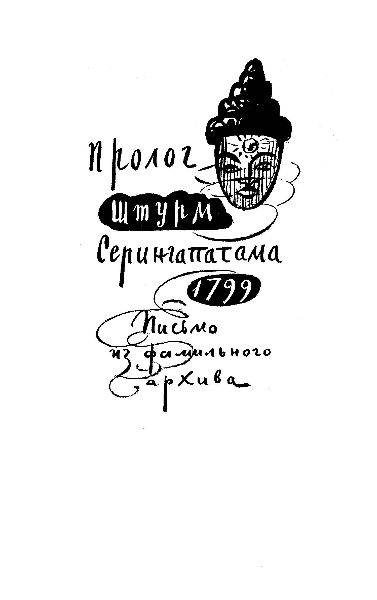 Пролог
Штурм
Серингапатама
1799
Письмо
из фамильного
архива